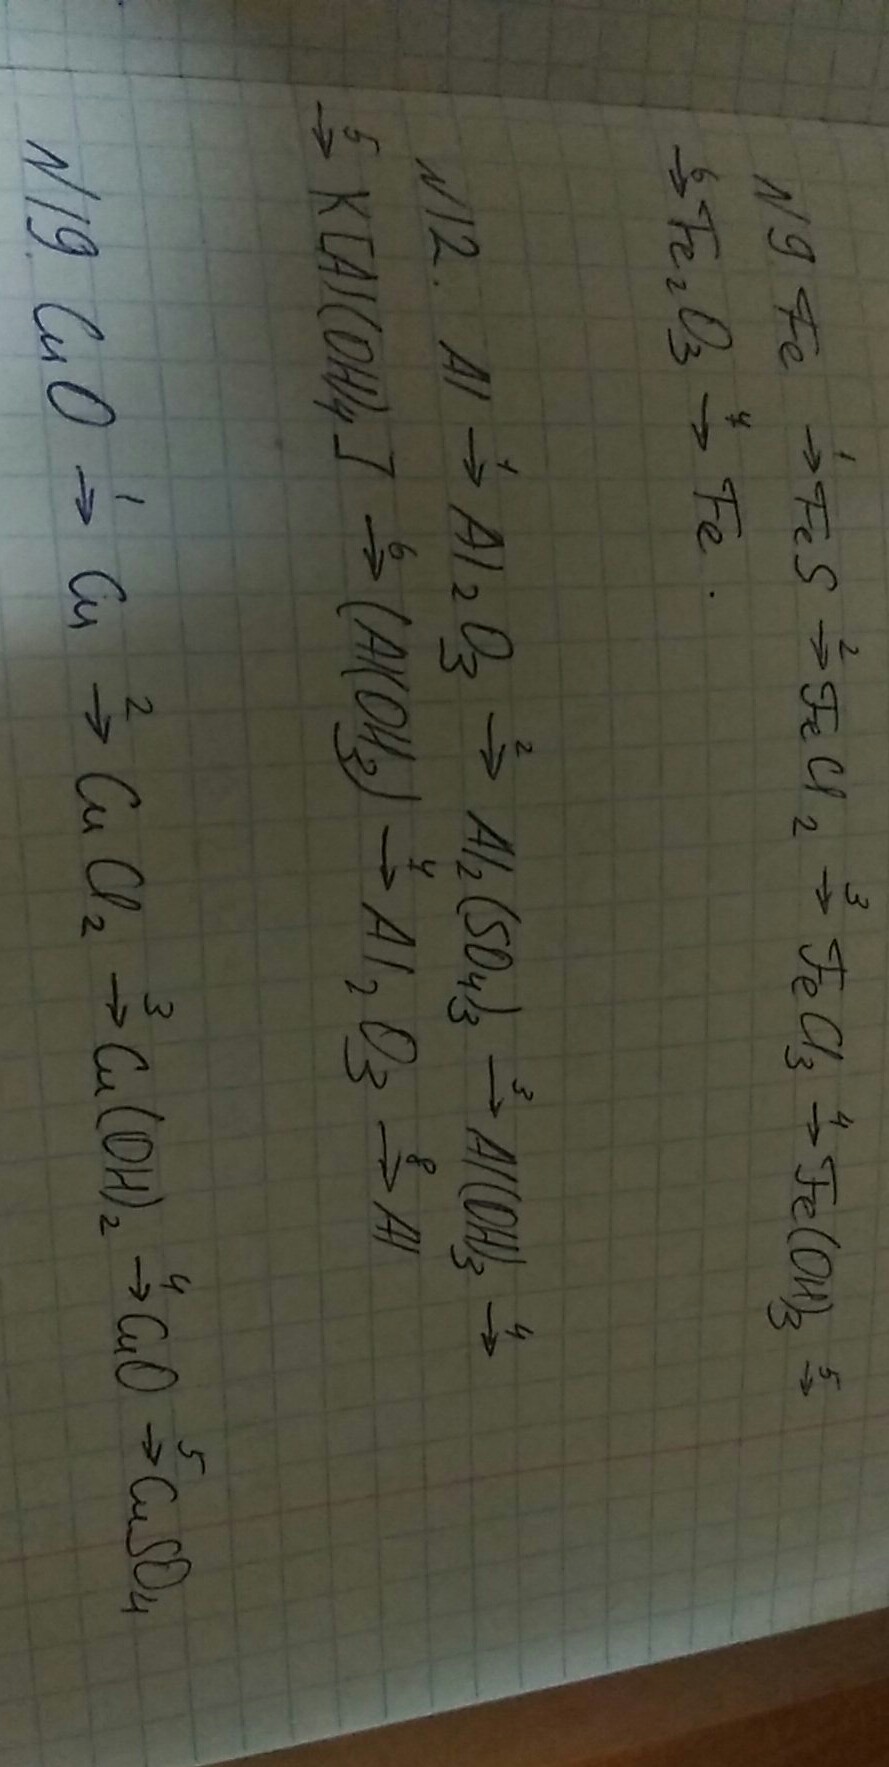 N9 Fe →¹ FeS →² FeCl₂ →³ FeCl₃ →⁴ Fe(OH)₃ →⁵
→⁶ Fe₂O₃ →⁷ Fe.
N12. Al →¹ Al₂O₃ →² Al₂(SO₄)₃ →³ Al(OH)₃ →⁴
→⁵ K[Al(OH)₄] →⁶ (Al(OH)₃) →⁷ Al₂O₃ →⁸ Al
N19. CuO →¹ Cu →² CuCl₂ →³ Cu(OH)₂ →⁴ CuO →⁵ CuSO₄